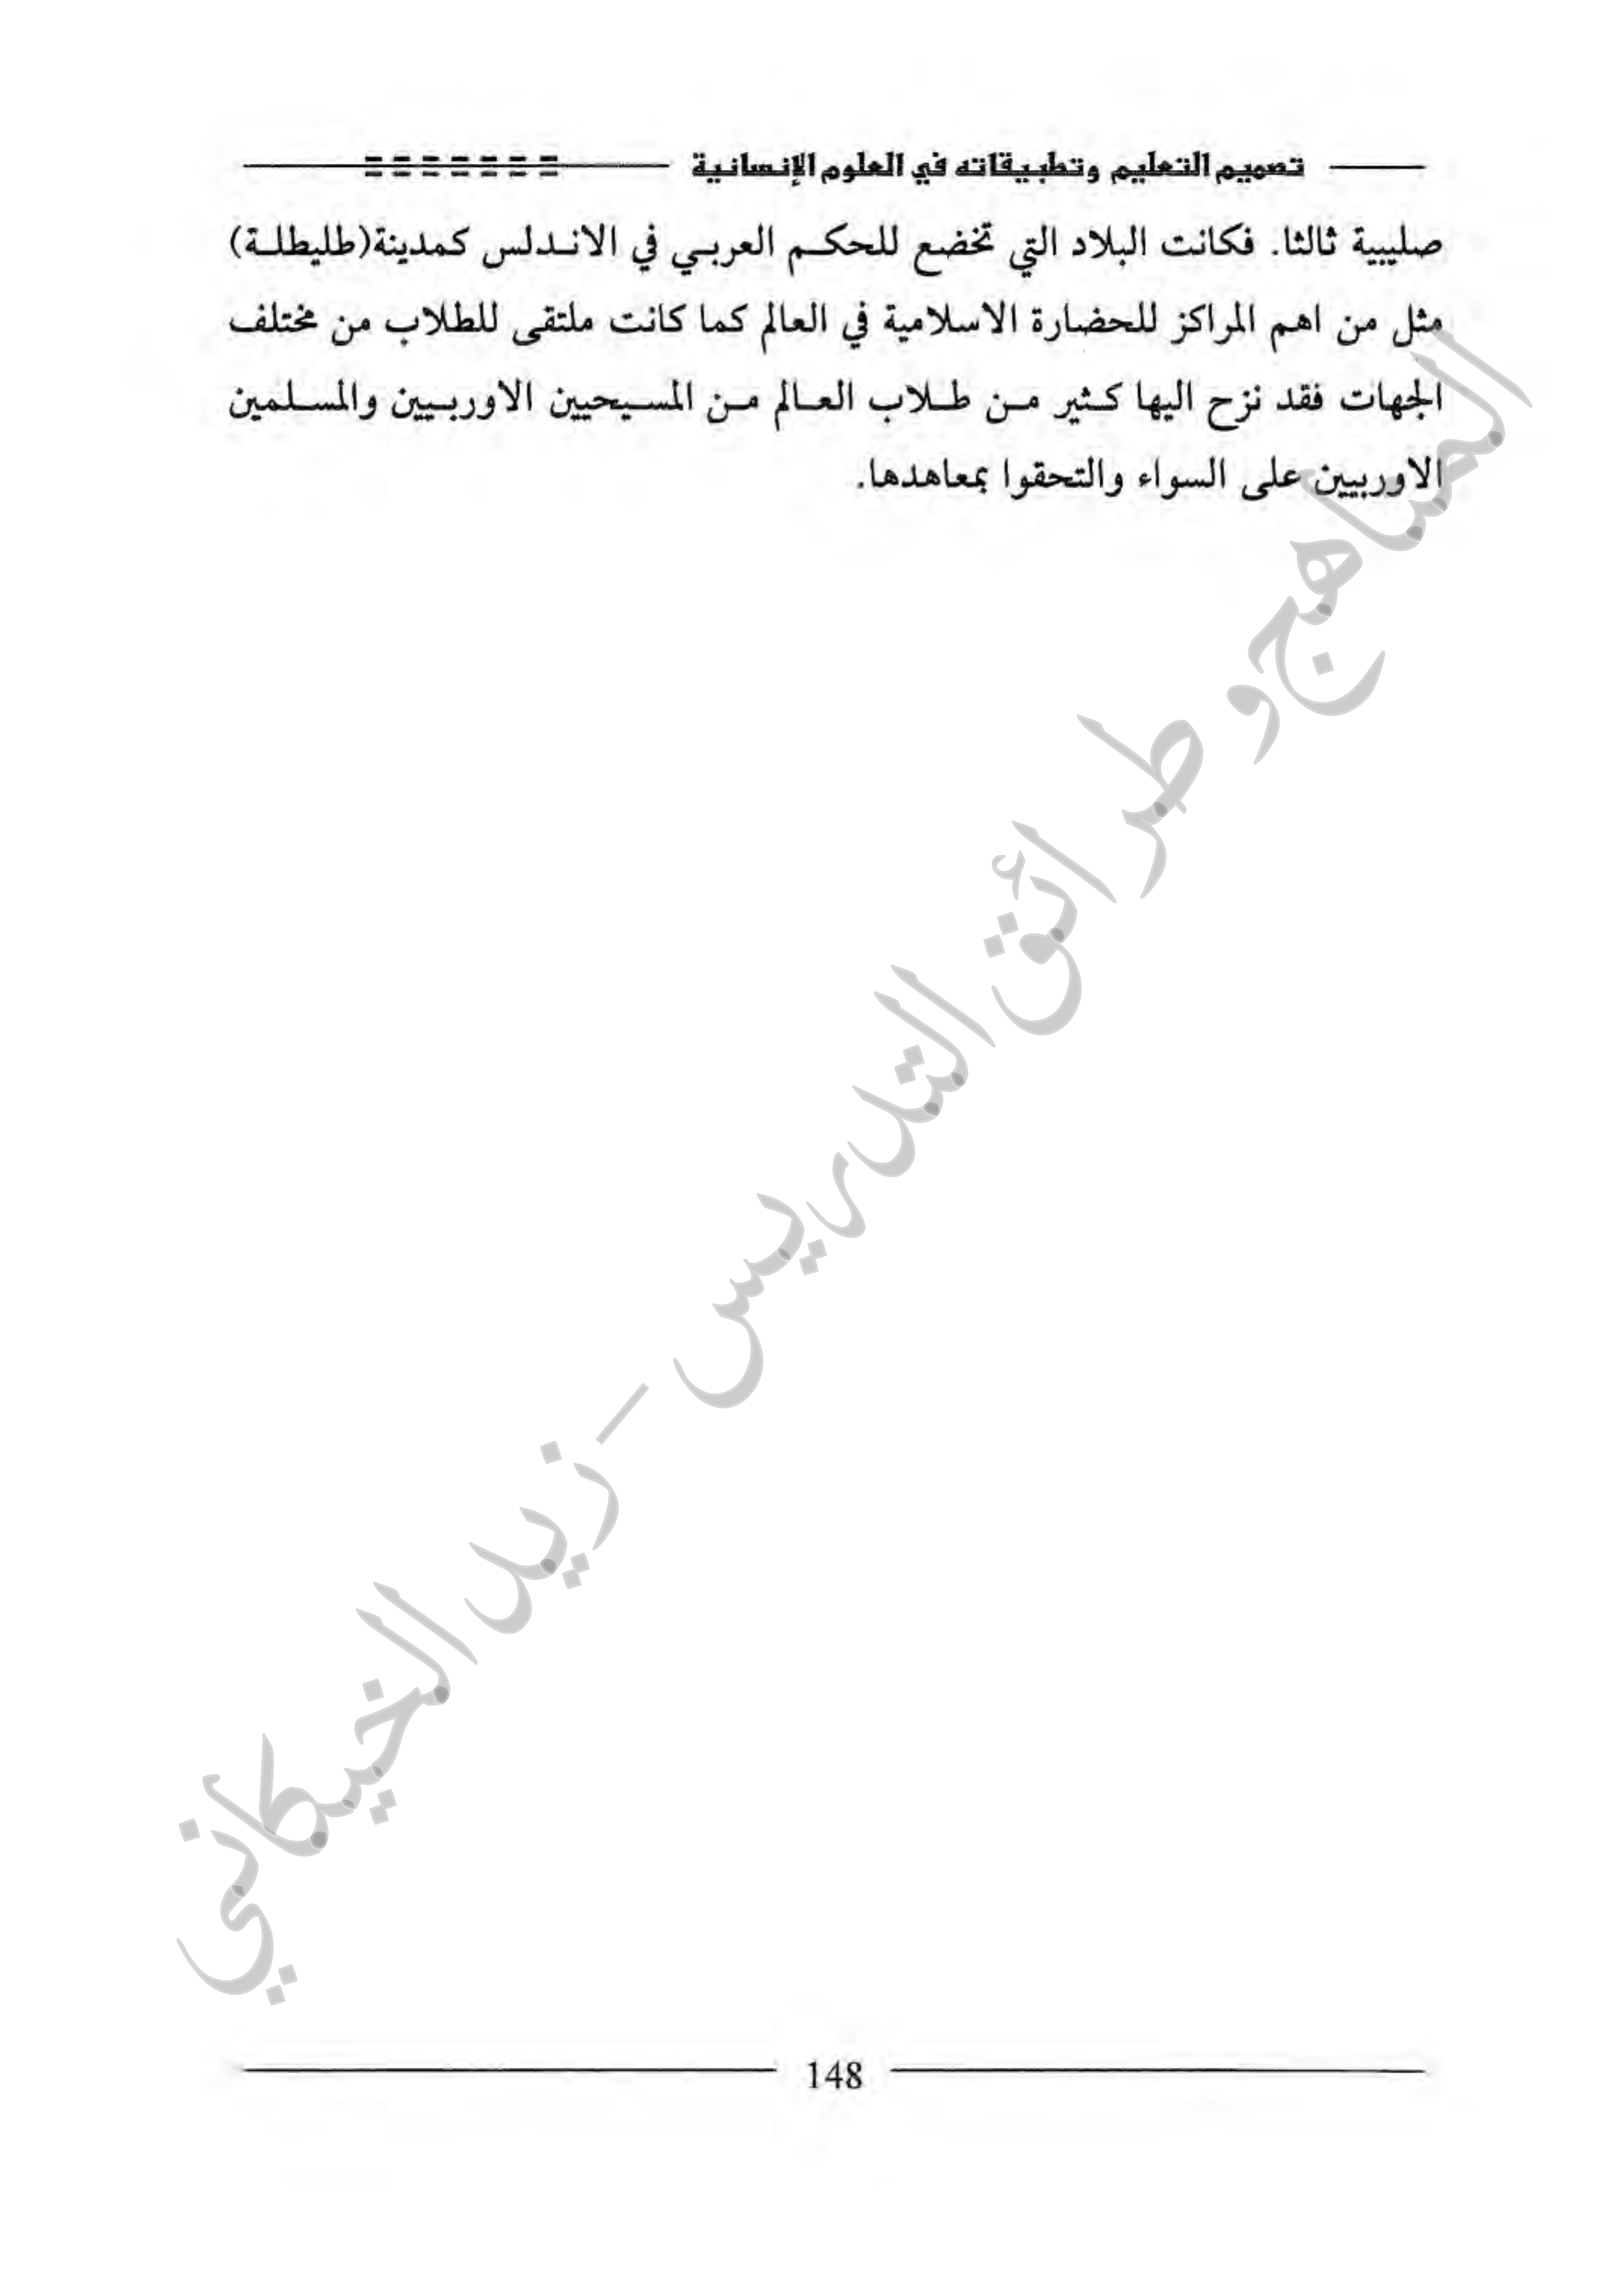 تصميم التعليم وتطبيقاته في العلوم الإنسانية
صليبية ثالثا. فكانت البلاد التي تخضع للحكم العربي في الاندلس كمدينة(طليطلة)
مثل من اهم المراكز للحضارة الاسلامية في العالم كما كانت ملتقى للطلاب من مختلف
الجهات فقد نزح اليها كثير من طلاب العالم من المسيحيين الاوربيين والمسلمين
الاوربيين على السواء والتحقوا بمعاهدها.
المناهج و طرائق التدريس - زيد الخيكاني
148